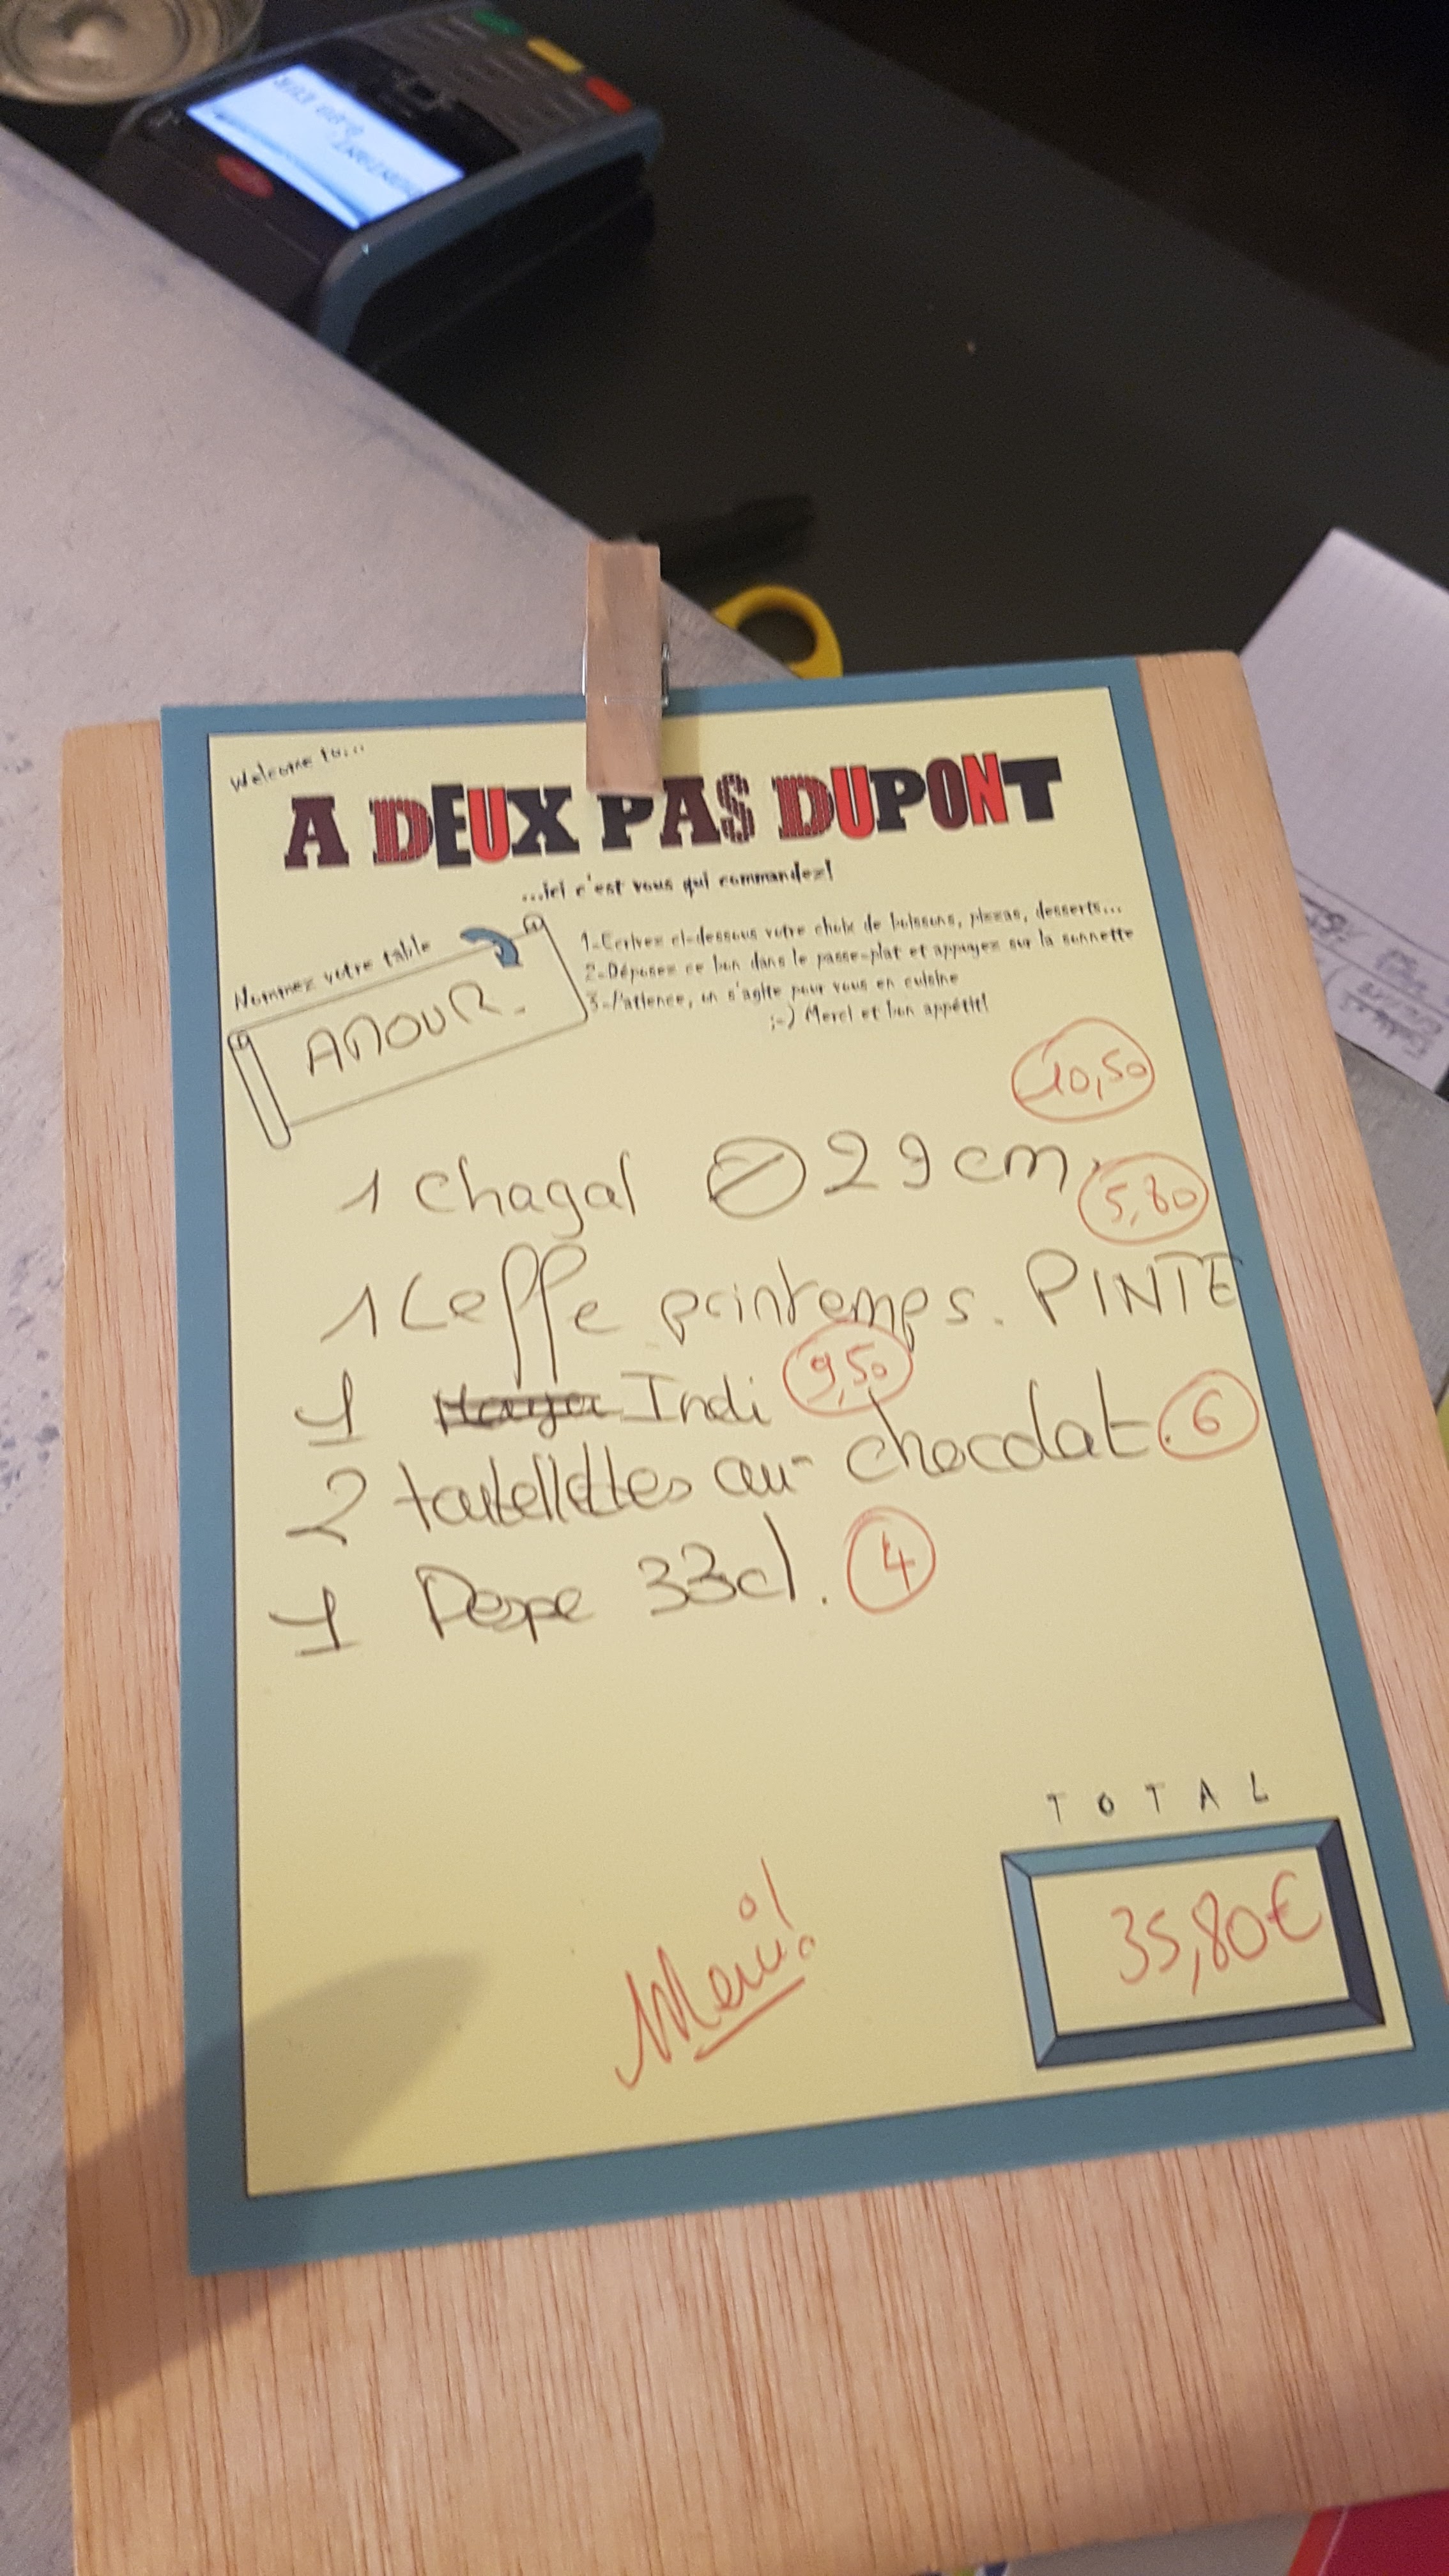 Welcome to...
A DEUX PAS DUPONT
...ici c'est vous qui commandez!
Nommez votre table
AMOUR.
1-Ecrivez ci-dessous votre choix de boissons, pizzas, desserts...
2-Déposez ce bon dans le passe-plat et appuyez sur la sonnette
3-Patience, on s'agite pour vous en cuisine
;-) Merci et bon appétit!
10,50
1 Chagal 29cm.
5,80
1 Leffe printemps. PINTE
1 Indi 9,50
2 tartelettes au chocolat. 6
1 Pepe 33cl. 4
TOTAL
35,80€
Merci!